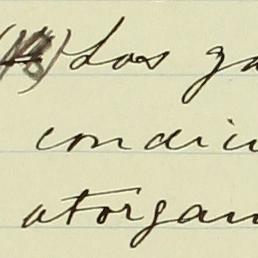 Los ga
condici
atorgan